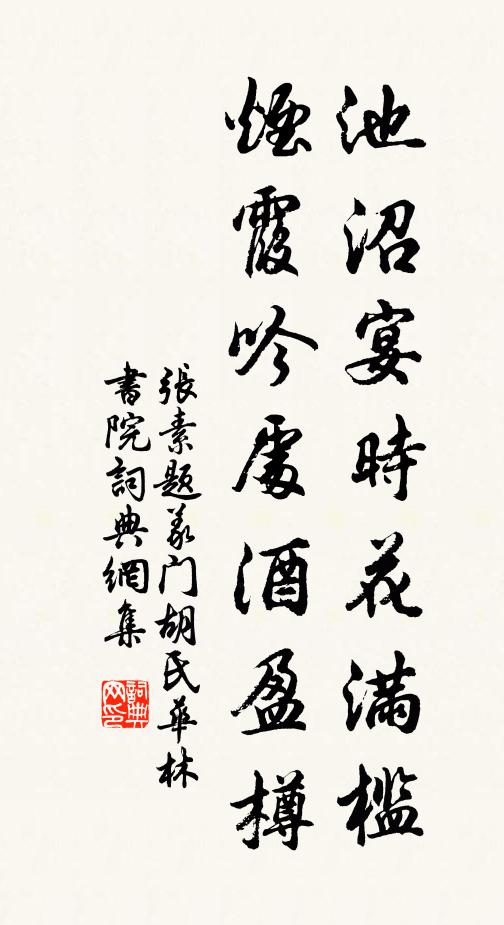 池沼宴時花滿檻
煙霞吟處酒盈樽
張素題義门胡氏華林
書院詞典網集
詞典
网印